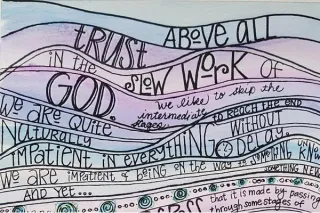 Above All
trust
in the slow work of
GOD.
we like to skip the
intermediate
stages
to reach the end
We are quite
Naturally
without
impatient in everything
delay.
We are impatient of being on the way to something
unknown
something new.
And yet...
that it is made by passing
through some stages of